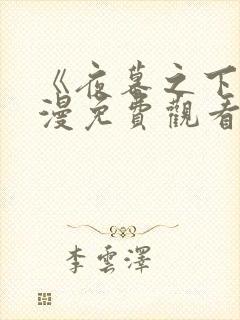 《夜幕之下
漫免費觀看
李雲澤